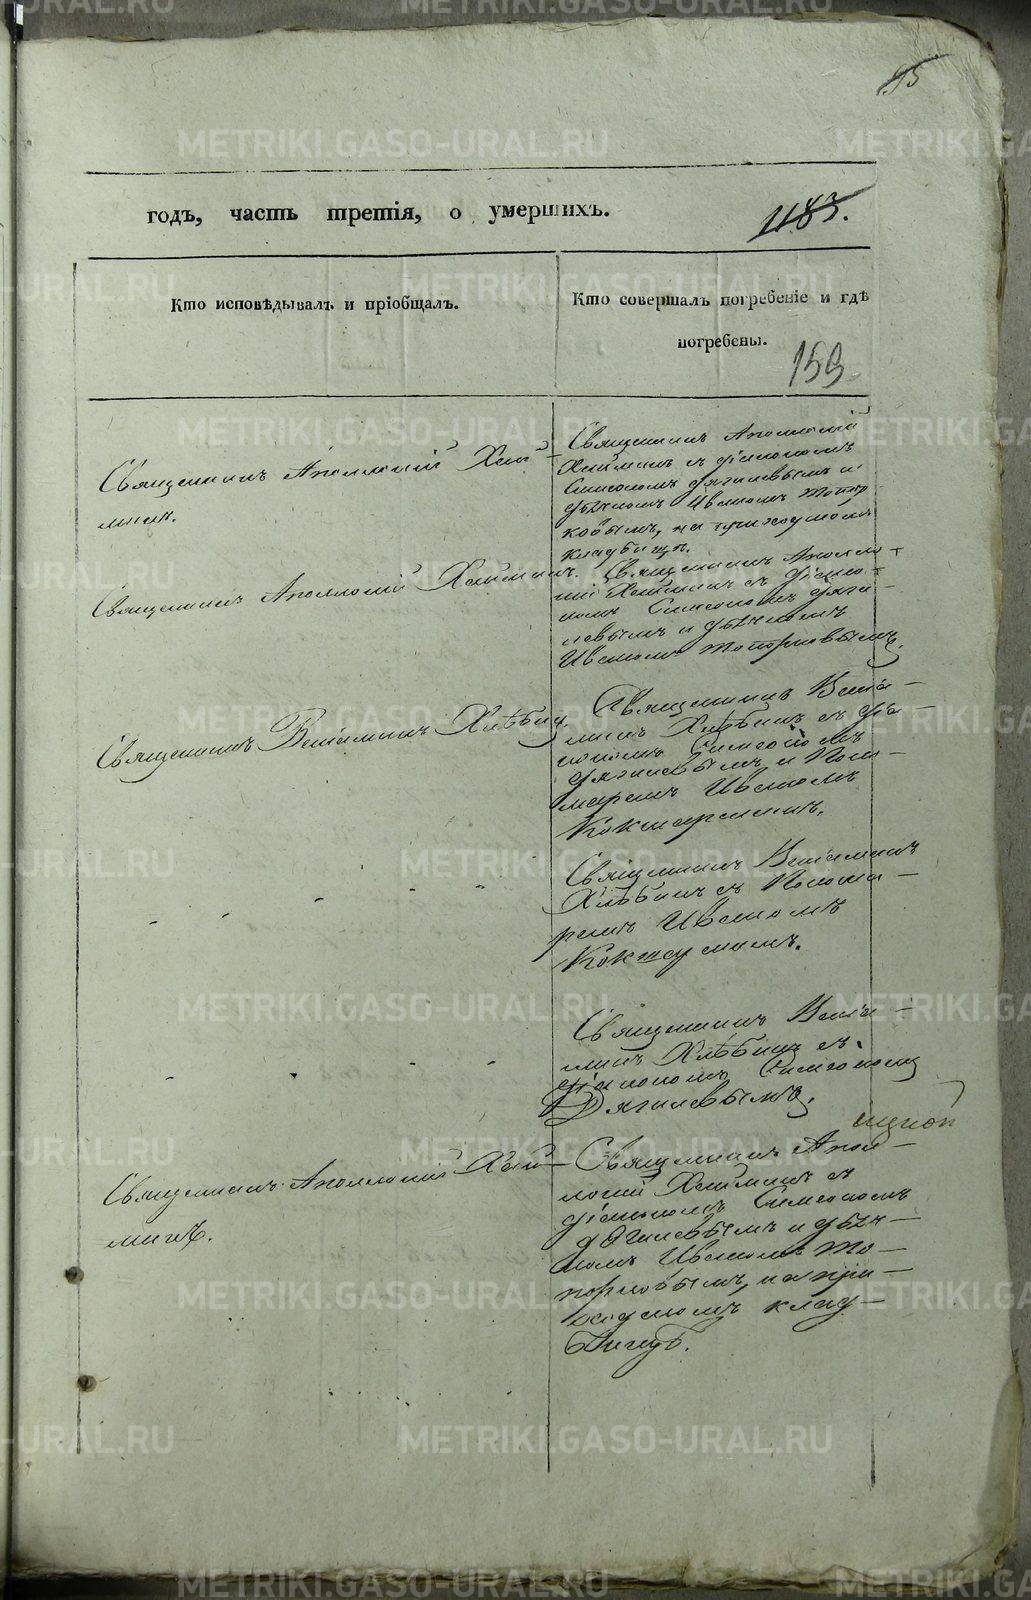 95
годъ, часть третія, о умершихъ.
1183.
Кто исповѣдывалъ и пріобщалъ.
Кто совершалъ погребеніе и гдѣ
погребены.
159
Священникъ Аполлоній Хлып-
Священникъ Аполлоній
съ діакономъ
Симеономъ Дягилевымъ и
дьячкомъ Иваномъ Топор
ковымъ, на приходскомъ
кладбищѣ.
Священникъ Аполлоній
Священникъ Аполло-
ній съ діако-
номъ Симеономъ Дяги-
левымъ и дьячкомъ
Иваномъ Топорковымъ.
Священникъ Веніаминъ Хлѣбин
Священникъ Веніа-
минъ Хлѣбинъ съ діа-
кономъ Симеономъ
Дягилевымъ и Поно-
маремъ Иваномъ
Кокшарскимъ.
Священникъ Веніаминъ
Хлѣбинъ съ Понома-
ремъ Иваномъ
Священникъ Веніа-
минъ Хлѣбинъ съ
діакономъ Симеономъ
Дягилевымъ.
Священникъ Аполлоній
Священникъ Апол-
лоній съ
діакономъ Симеономъ
Дягилевымъ и дьяч-
комъ Иваномъ То-
порковымъ, на при-
ходскомъ клад-
бищѣ.
METRIKI.GASO-URAL.RU